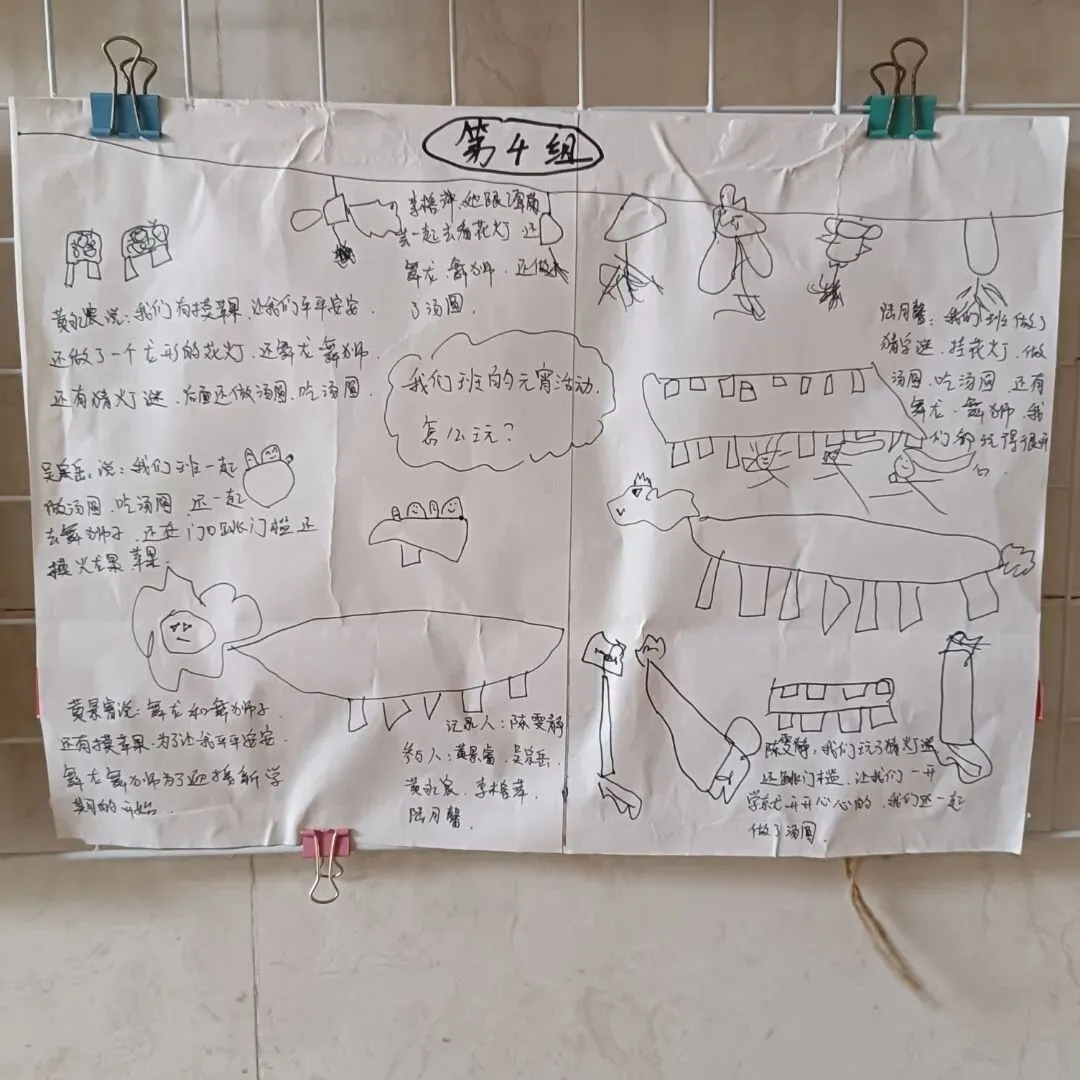 第4组
李梓萍:她跟
一起去看花灯 还
舞龙.舞狮.还做
了汤圆.
黄永宸说:我们有摸苹果.让我们平平安安.
还做了一个龙形的花灯.还舞龙舞狮.
还有猜灯谜.后面还做汤圆.吃汤圆.
我们班的元宵活动.
怎么玩?
陆月馨:我们班做了
猜字迷.挂花灯.做
汤圆.吃汤圆 还有
舞龙.舞狮.我
们都玩得很开
心.
说:我们班一起
做汤圆.吃汤圆 还一起
去舞狮子.还在门口跳门槛还
摸火龙果 苹果.
黄果睿说:舞龙和舞狮子.
还有摸苹果.为了让我平平安安.
舞龙舞狮为了迎接新学
期的开始.
记录人:陈雯静
参与人:黄果睿.
黄永宸.李梓萍.
陆月馨.
陈雯静:我们玩了猜灯迷.
还跳门槛.让我们一开
学就开开心心的.我们还一起
做了汤圆